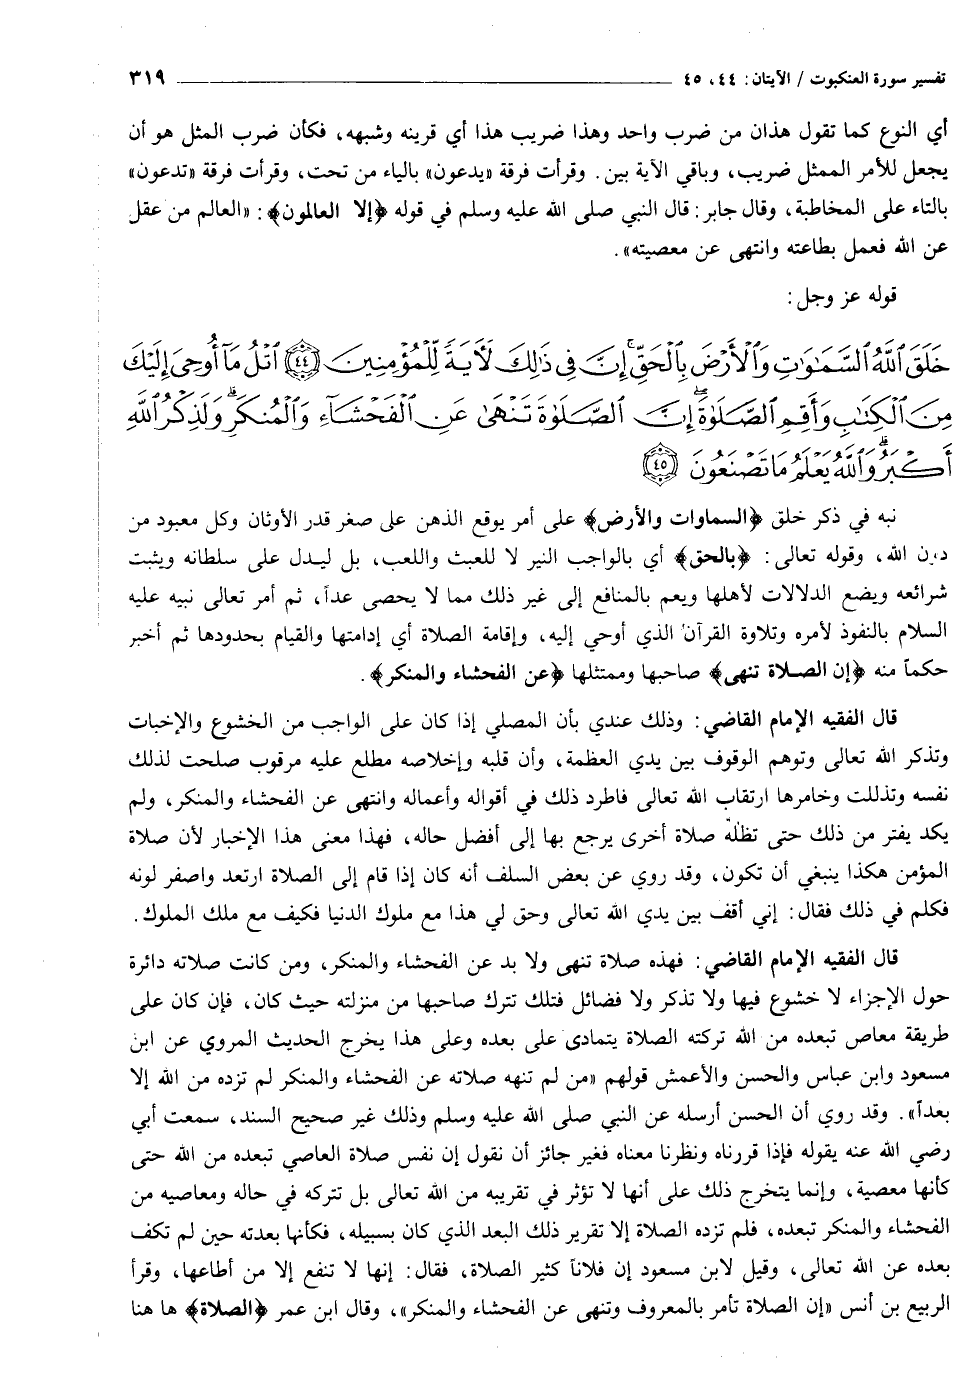 تفسير سورة العنكبوت / الآيتان: ٤٤، ٤٥ ــــــــــــــــــــ ٣١٩
أي النوع كما تقول هذان من ضرب واحد وهذا ضريب هذا أي قرينه وشبهه، فكأن ضرب المثل هو أن
يجعل للأمر الممثل ضريب، وباقي الآية بين. وقرأت فرقة «يدعون» بالياء من تحت، وقرأت فرقة «تدعون»
بالتاء على المخاطبة، وقال جابر: قال النبي صلى الله عليه وسلم في قوله ﴿إلا العالمون﴾: «العالم من عقل
عن الله فعمل بطاعته وانتهى عن معصيته».
قوله عز وجل:
خَلَقَ ٱللَّهُ ٱلسَّمَٰوَٰتِ وَٱلْأَرْضَ بِٱلْحَقِّ إِنَّ فِى ذَٰلِكَ لَآيَةً لِّلْمُؤْمِنِينَ ﴿٤٤﴾ ٱتْلُ مَآ أُوحِىَ إِلَيْكَ
مِنَ ٱلْكِتَٰبِ وَأَقِمِ ٱلصَّلَوٰةَ إِنَّ ٱلصَّلَوٰةَ تَنْهَىٰ عَنِ ٱلْفَحْشَآءِ وَٱلْمُنكَرِ وَلَذِكْرُ ٱللَّهِ
أَكْبَرُ وَٱللَّهُ يَعْلَمُ مَا تَصْنَعُونَ ﴿٤٥﴾
نبه في ذكر خلق ﴿السماوات والأرض﴾ على أمر يوقع الذهن على صغر قدر الأوثان وكل معبود من
دون الله، وقوله تعالى: ﴿بالحق﴾ أي بالواجب النير لا للعبث واللعب، بل ليدل على سلطانه ويثبت
شرائعه ويضع الدلالات لأهلها ويعم بالمنافع إلى غير ذلك مما لا يحصى عداً، ثم أمر تعالى نبيه عليه
السلام بالنفوذ لأمره وتلاوة القرآن الذي أوحي إليه، وإقامة الصلاة أي إدامتها والقيام بحدودها ثم أخبر
حكماً منه ﴿إن الصلاة تنهى﴾ صاحبها وممتثلها ﴿عن الفحشاء والمنكر﴾.
قال الفقيه الإمام القاضي: وذلك عندي بأن المصلي إذا كان على الواجب من الخشوع والإخبات
وتذكر الله تعالى وتوهم الوقوف بين يدي العظمة، وأن قلبه وإخلاصه مطلع عليه مرقوب صلحت لذلك
نفسه وتذللت وخامرها ارتقاب الله تعالى فاطرد ذلك في أقواله وأعماله وانتهى عن الفحشاء والمنكر، ولم
يكد يفتر من ذلك حتى تظله صلاة أخرى يرجع بها إلى أفضل حاله، فهذا معنى هذا الإخبار لأن صلاة
المؤمن هكذا ينبغي أن تكون، وقد روي عن بعض السلف أنه كان إذا قام إلى الصلاة ارتعد واصفر لونه
فكلم في ذلك فقال: إني أقف بين يدي الله تعالى وحق لي هذا مع ملوك الدنيا فكيف مع ملك الملوك.
قال الفقيه الإمام القاضي: فهذه صلاة تنهى ولا بد عن الفحشاء والمنكر، ومن كانت صلاته دائرة
حول الإجزاء لا خشوع فيها ولا تذكر ولا فضائل فتلك تترك صاحبها من منزلته حيث كان، فإن كان على
طريقة معاص تبعده من الله تركته الصلاة يتمادى على بعده وعلى هذا يخرج الحديث المروي عن ابن
مسعود وابن عباس والحسن والأعمش قولهم «من لم تنهه صلاته عن الفحشاء والمنكر لم تزده من الله إلا
بعداً». وقد روي أن الحسن أرسله عن النبي صلى الله عليه وسلم وذلك غير صحيح السند، سمعت أبي
رضي الله عنه يقوله فإذا قررناه ونظرنا معناه فغير جائز أن نقول إن نفس صلاة العاصي تبعده من الله حتى
كأنها معصية، وإنما يتخرج ذلك على أنها لا تؤثر في تقريبه من الله تعالى بل تتركه في حاله ومعاصيه من
الفحشاء والمنكر تبعده، فلم تزده الصلاة إلا تقرير ذلك البعد الذي كان بسبيله، فكأنها بعدته حين لم تكف
بعده عن الله تعالى، وقيل لابن مسعود إن فلاناً كثير الصلاة، فقال: إنها لا تنفع إلا من أطاعها، وقرأ
الربيع بن أنس «إن الصلاة تأمر بالمعروف وتنهى عن الفحشاء والمنكر»، وقال ابن عمر ﴿الصلاة﴾ ها هنا